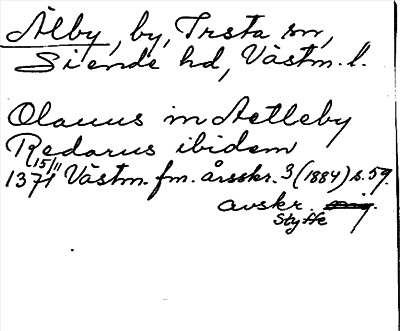 Älby, by, Irsta sn,
Siende hd, Västm. l.
Olauus in Aelleby
Redarus ibidem
15/11
1371 Västm. fm. årsskr. 3 (1884) s. 59.
avskr.
Styffe